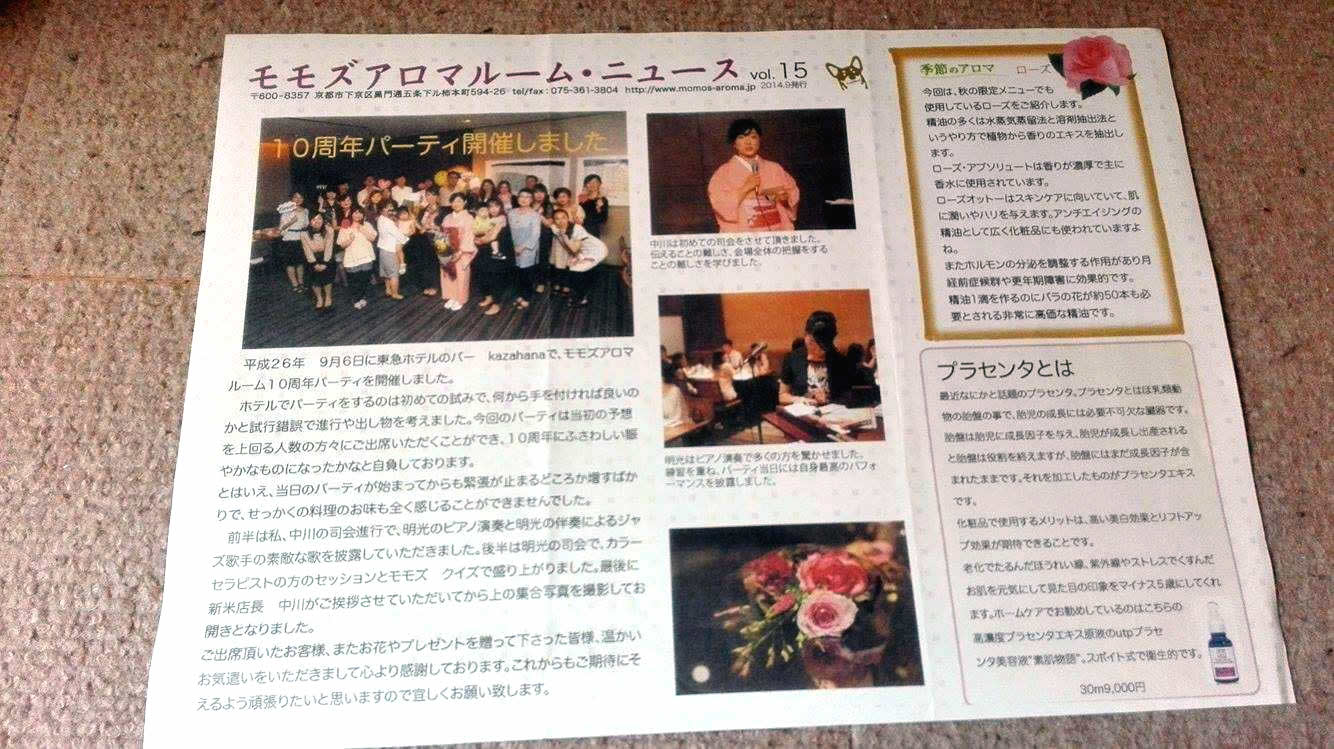 モモズアロマルーム・ニュース vol.15
〒600-8357 京都市下京区黒門通五条下ル柿本町594-26 tel/fax:075-361-3804 http://www.momos-aroma.jp 2014.9発行
10周年パーティ開催しました
平成26年 9月6日に東急ホテルのバー kazahanaで、モモズアロマ
ルーム10周年パーティを開催しました。
ホテルでパーティをするのは初めての試みで、何から手を付ければ良いの
かと試行錯誤で進行や出し物を考えました。今回のパーティは当初の予想
を上回る人数の方々にご出席いただくことができ、10周年にふさわしい賑
やかなものになったかなと自負しております。
とはいえ、当日のパーティが始まってからも緊張が止まるどころか増すばか
りで、せっかくの料理のお味も全く感じることができませんでした。
前半は私、中川の司会進行で、明光のピアノ演奏と明光の伴奏によるジャ
ズ歌手の素敵な歌を披露していただきました。後半は明光の司会で、カラー
セラピストの方のセッションとモモズ クイズで盛り上がりました。最後に
新米店長 中川がご挨拶させていただいてから上の集合写真を撮影してお
開きとなりました。
ご出席頂いたお客様、またお花やプレゼントを贈って下さった皆様、温かい
お気遣いをいただきまして心より感謝しております。これからもご期待にそ
えるよう頑張りたいと思いますので宜しくお願い致します。
中川は初めての司会をさせて頂きました。
伝えることの難しさ、会場全体の把握をする
ことの難しさを学びました。
明光はピアノ演奏で多くの方を驚かせました。
練習を重ね、パーティ当日には自身最高のパフォ
ーマンスを披露しました。
季節のアロマ ローズ
今回は、秋の限定メニューでも
使用しているローズをご紹介します。
精油の多くは水蒸気蒸留法と溶剤抽出法と
いうやり方で植物から香りのエキスを抽出し
ます。
ローズ・アブソリュートは香りが濃厚で主に
香水に使用されています。
ローズオットーはスキンケアに向いていて、肌
に潤いやハリを与えます。アンチエイジングの
精油として広く化粧品にも使われていますよ
ね。
またホルモンの分泌を調整する作用があり月
経前症候群や更年期障害に効果的です。
精油1滴を作るのにバラの花が約50本も必
要とされる非常に高価な精油です。
プラセンタとは
最近なにかと話題のプラセンタ。プラセンタとはほ乳類動
物の胎盤の事で、胎児の成長には必要不可欠な臓器です。
胎盤は胎児に成長因子を与え、胎児が成長し出産される
と胎盤は役割を終えますが、胎盤にはまだ成長因子が含
まれたままです。それを加工したものがプラセンタエキス
です。
化粧品で使用するメリットは、高い美白効果とリフトアッ
プ効果が期待できることです。
老化でたるんだほうれい線、紫外線やストレスでくすんだ
お肌を元気にして見た目の印象をマイナス5歳にしてくれ
ます。ホームケアでお勧めしているのはこちらの
高濃度プラセンタエキス原液のutpプラセ
ンタ美容液"素肌物語"。スポイト式で衛生的です。
30m9,000円